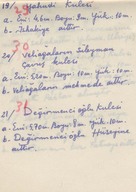 19/ Yahudi Kulesi
29
a. Eni: 4.60m. Boyu: 3m. Yük. 10m.
b. Zekakiye aittir.
30
20/ Veliağaların Süleyman
Çavuş Kulesi
a. Eni: 5.20m. Boyu: 10m. Yük. 10m.
b. Veliağaların mehmede aittir.
31
21/ Değirmenci oğlu Kulesi
a. Eni: 5,70m. Boyu: 8m. Yük. 10m.
b. Değirmenci oğlu Hüseyine
aittir.